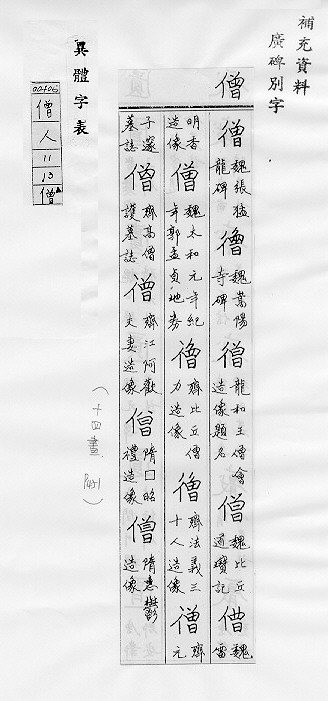 補充資料
廣碑別字
僧
僧 魏張猛龍碑 僧 魏嵩陽寺碑 僧 龍和王僧會造像題名 僧 魏比丘道瓊記 僧 魏雷
明香造像 僧 魏太和元年紀年郭孟貞地券 僧 齊比丘僧力造像 僧 齊法義三十人造像 僧 齊元
子邃墓誌 僧 齊高僧護墓誌 僧 齊江阿歡夫妻造像 僧 隋口昭禮造像 僧 隋惠鬱造像
(十四畫 P491)
異體字表
00406
僧
人
11
13
僧